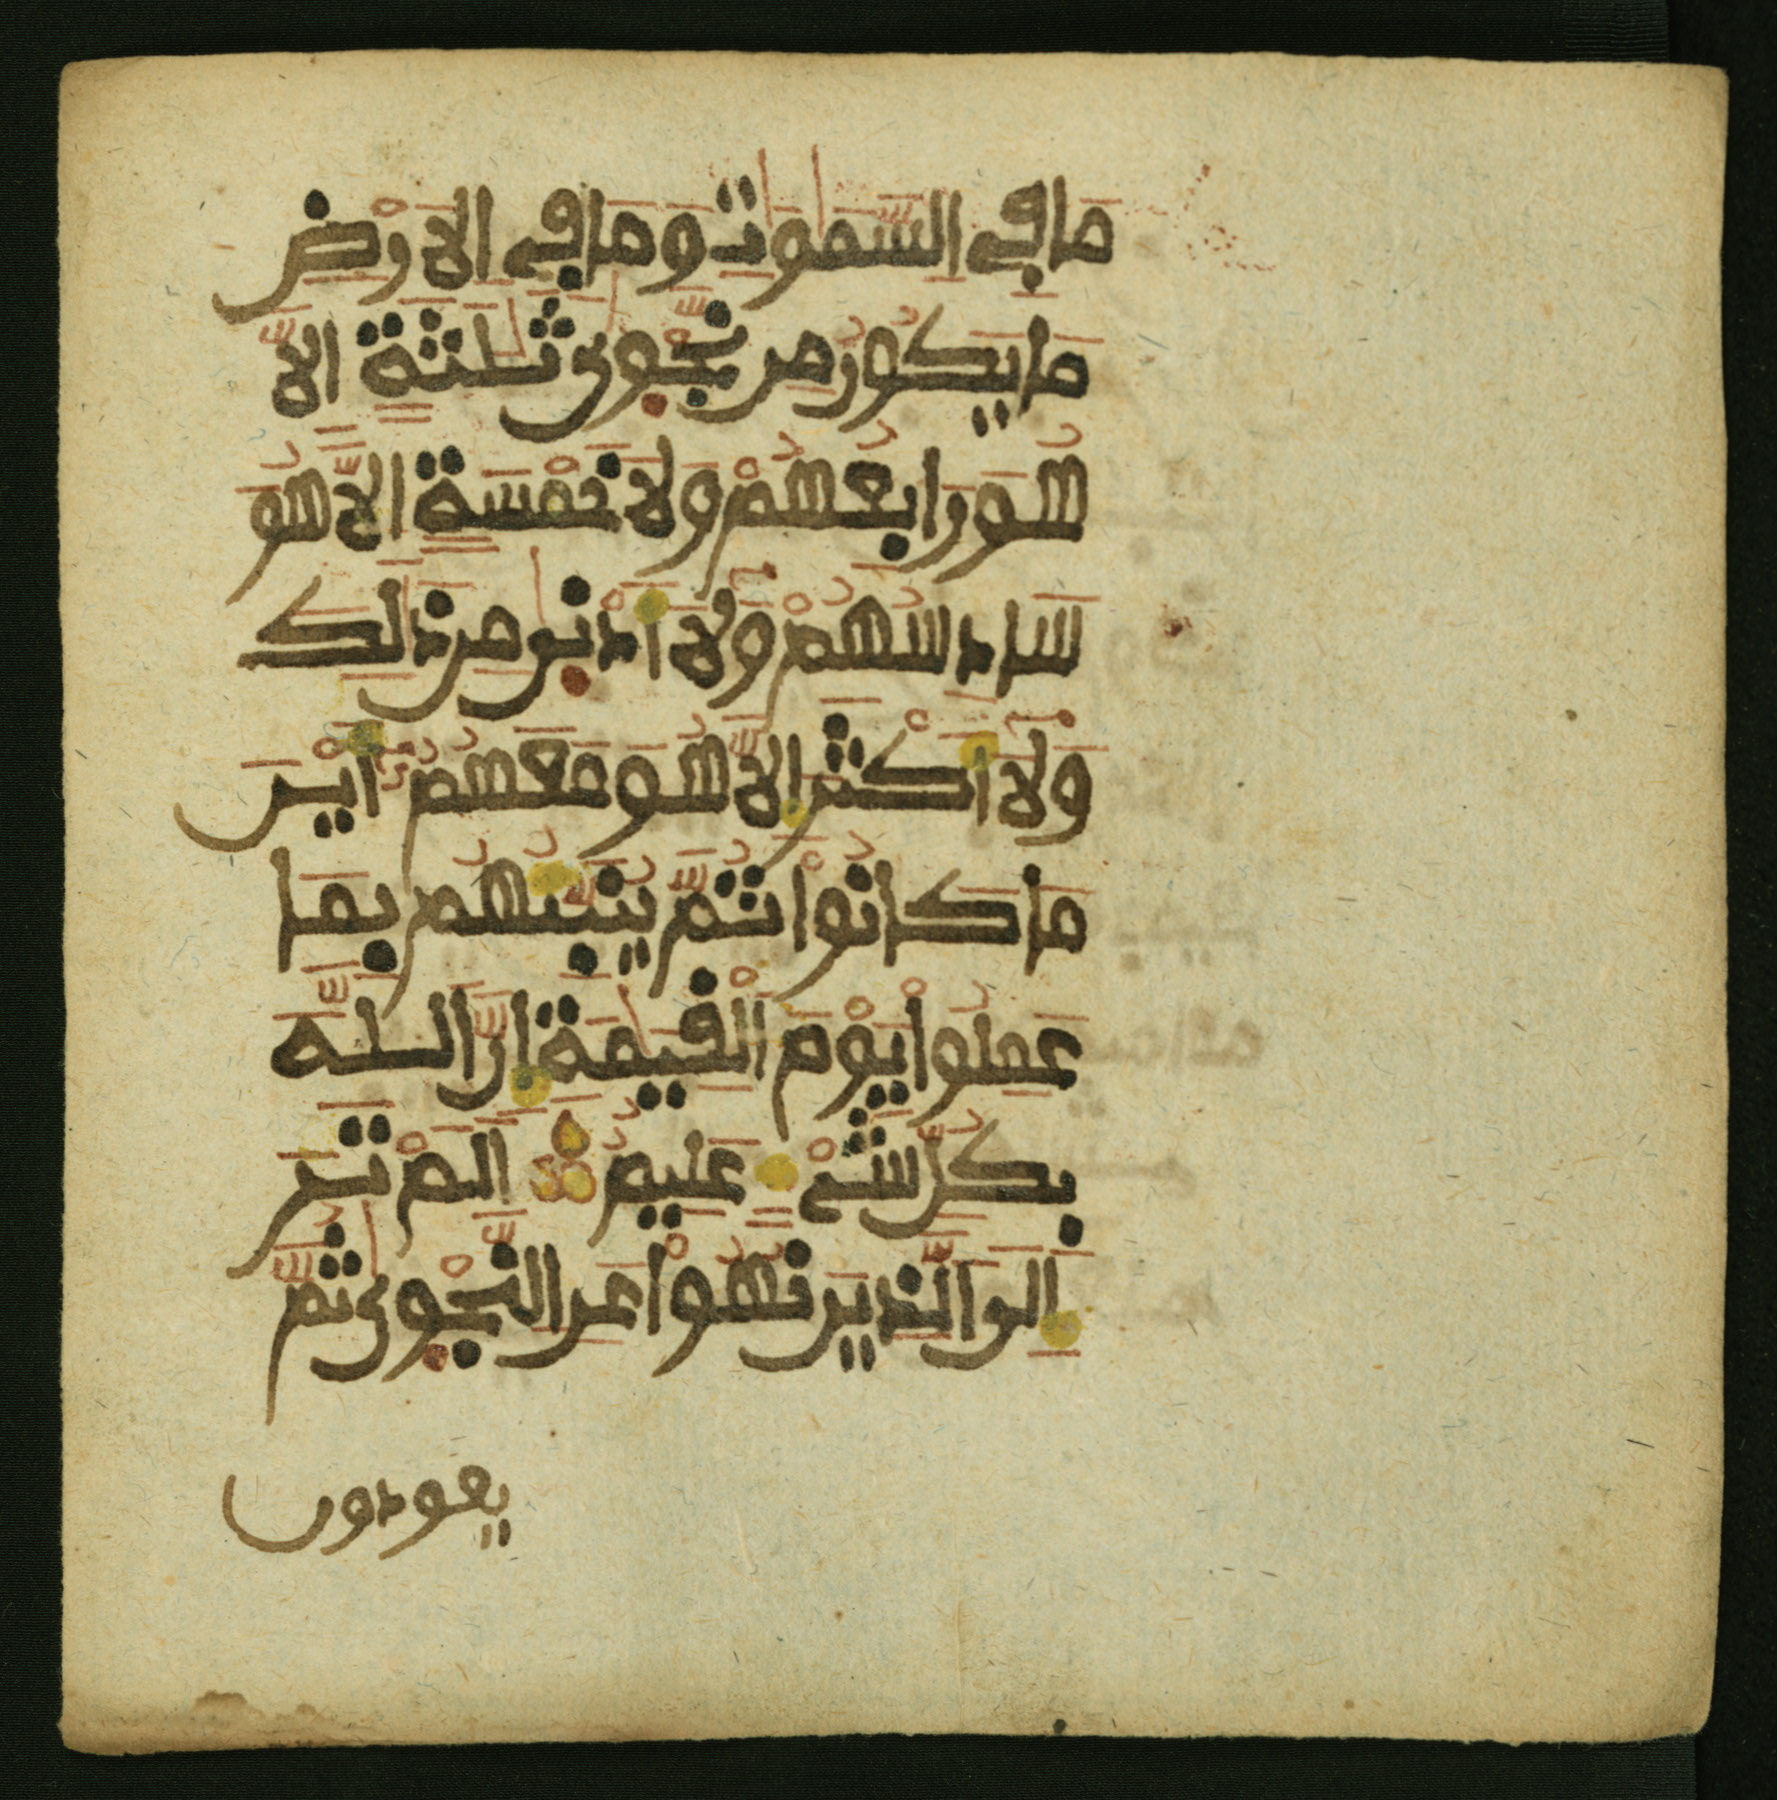 مَا فِے اِلسَّمَٰوَٰتِ وَمَا فِے اِلَارْضِ
مَا يَكُونُ مِن نَّجْوٜىٰ ثَلَٰثَةٍ اِلَّا
هُوَ رَابِعُهُمْ وَلَا خَمْسَةٍ اِلَّا هُوَ
سَادِسُهُمْ وَلَآ أَدْنٜىٰ مِن ذَٰلِكَ
وَلَآ أَكْثَرَ إِلَّا هُوَ مَعَهُمُۥٓ أَيْنَ
مَا كَانُواْ ثُمَّ يُنَبِّئُهُم بِمَا
عَمِلُواْ يَوْمَ اَلْقِيَٰمَةِ إِنَّ اَللَّهَ
بِكُلِّ شَےْءٍ عَلِيمٌ اَلَمْ تَرَ
إِلَى اَلَّذِينَ نُهُواْ عَنِ اِلنَّجْوٜىٰ ثُمَّ
يعودون